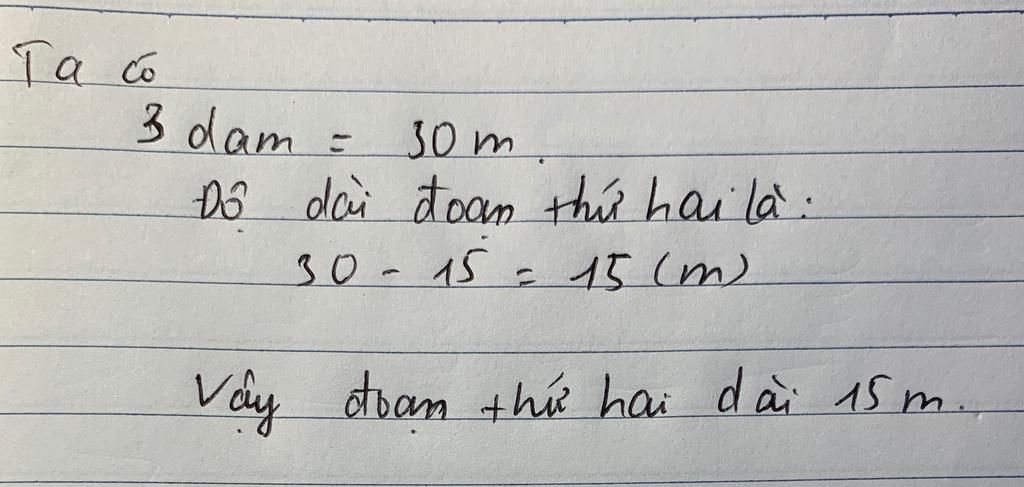 Ta có
3 dam = 30 m.
Độ dài đoạn thứ hai là:
30 - 15 = 15 (m)
Vậy đoạn thứ hai dài 15 m.